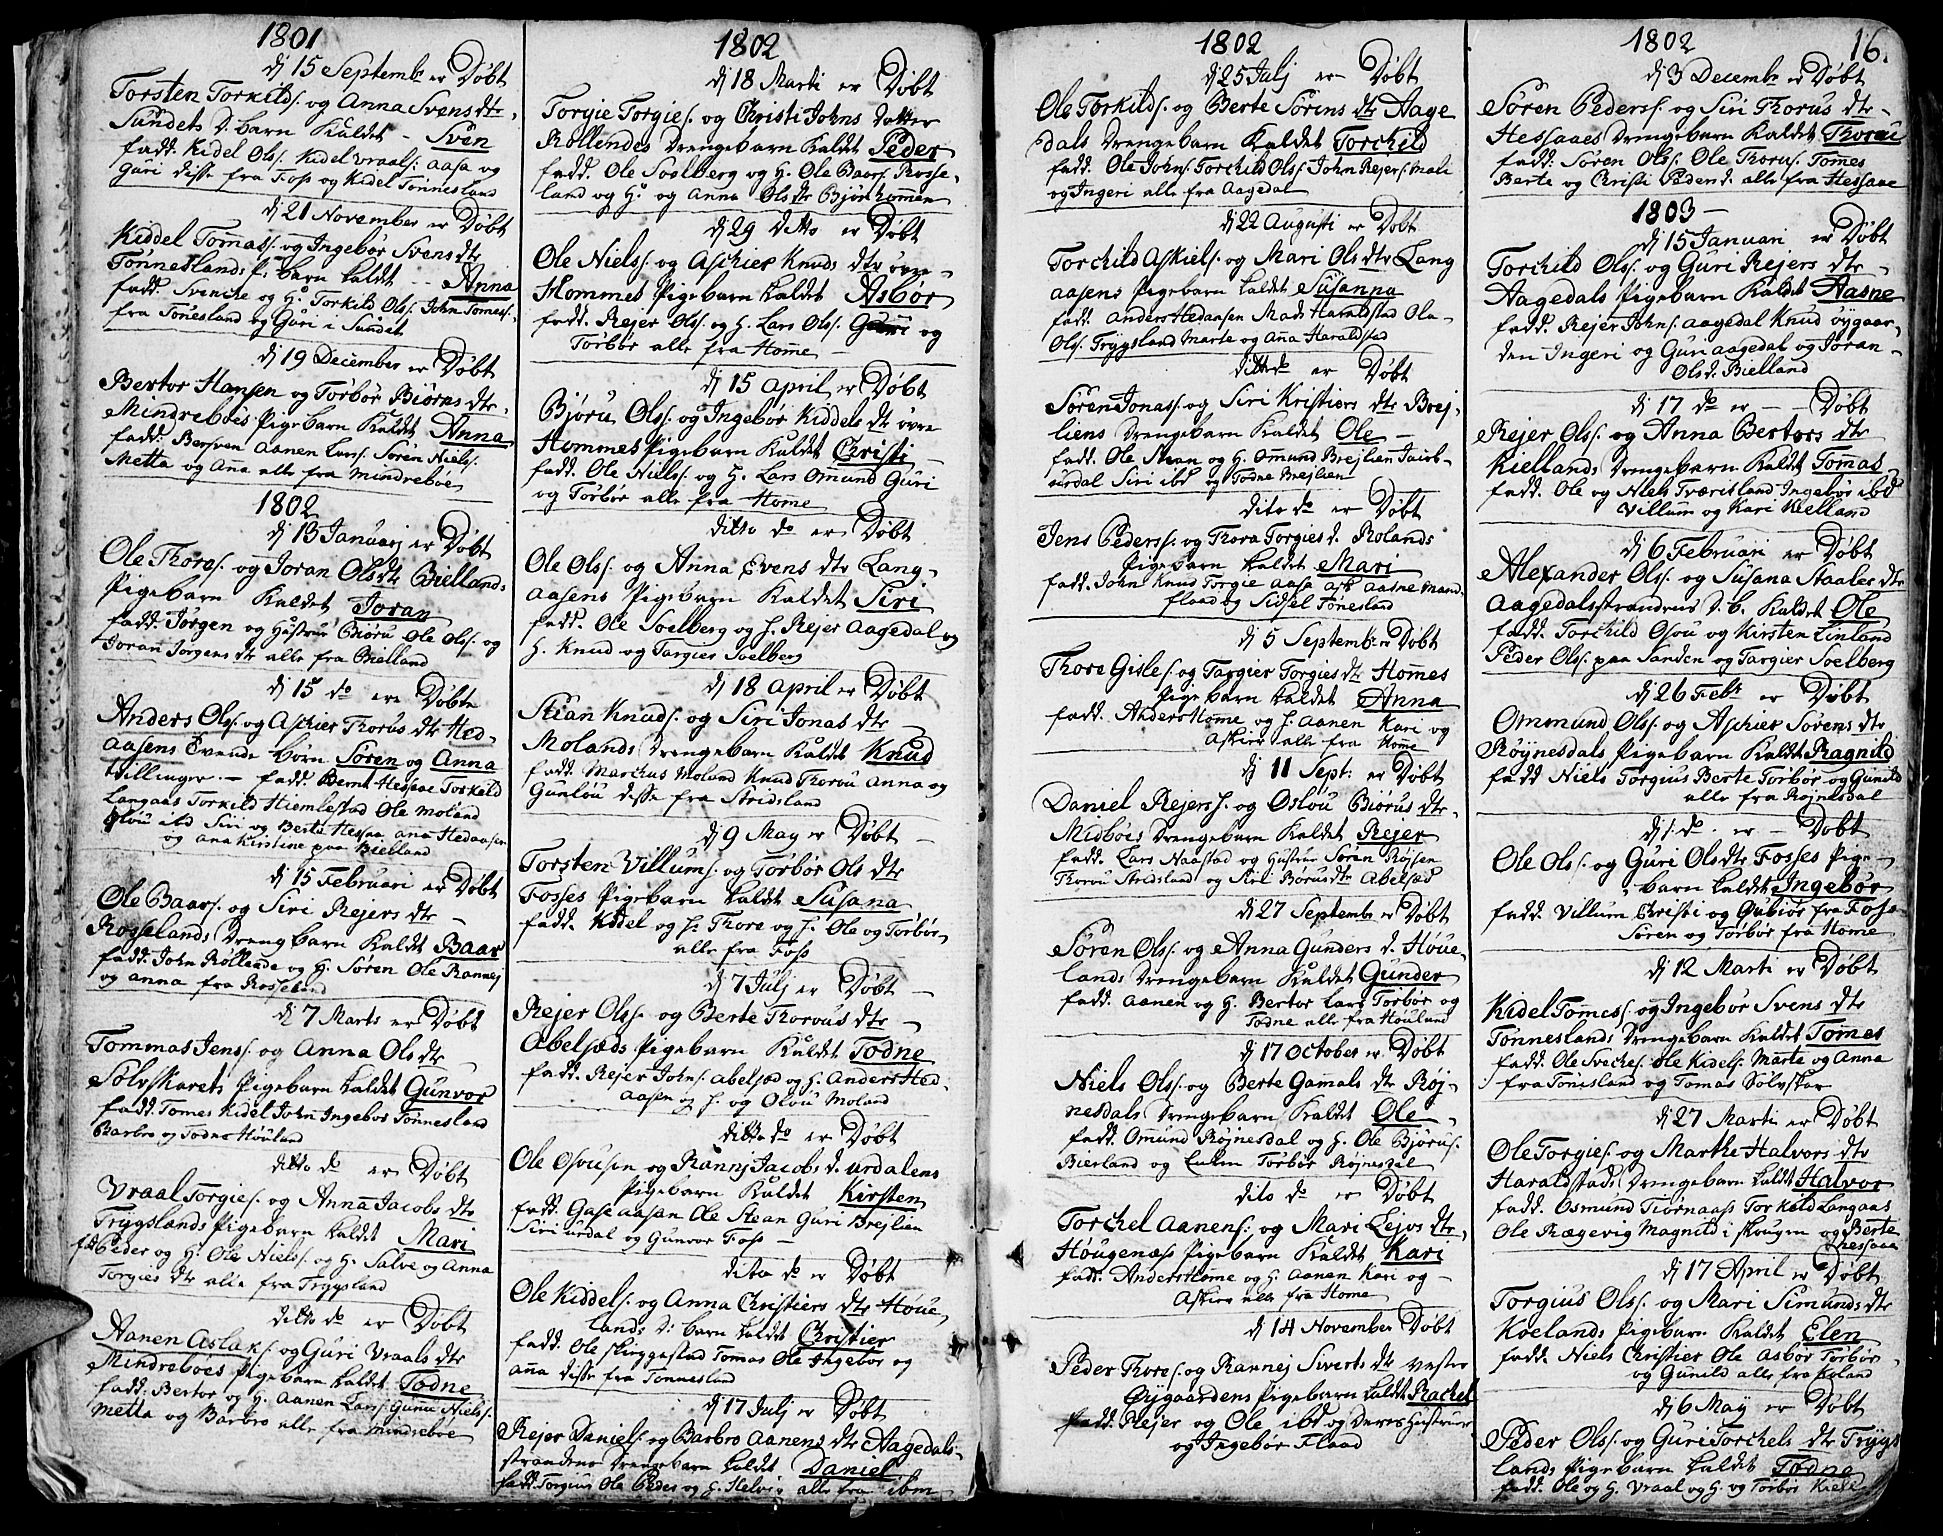 1801
dj 15 Septemb: er Døbt
Torsten Torkilds: og Anna Svens dtr
Sundets D: barn Kaldet - Sven
fadd. Kidel Ols: Kidel Vraals: Aasa og
Guri disse fra Foss og Kidel Tønnesland
dj 21 November er Døbt
Kiddel Tomas: og Ingebør Svens dtr
Tønneslands P: barn kaldet -- Anna
fadd. Svenche og H: Torkild Ols: John Tomes:
fra Tønesland og Guri i Sundet
dj 19 December er Døbt
Bertor Hansen og Torbør Biørus dtr
Mindreboes Pigebarn Kaldet Anna
fadd: Bersven Aanen Lars: Søren Niels:
Metta og Ana alle fra Mindreboe
1802
dj 13 Januarj er Døbt
Ole Thores: og Joran Ols dtr Biellands
Pigebarn Kaldet Joran
fadd. Jørgen og Hustrue Biøru Ole Ols: og
Joran Jørgens dtr alle fra Bielland
dj 15 do ere Døbte
Anders Ols: og Aschier Thorus dtr Hed-
aasens Tvende børn Søren og Anna
tvillinger - fadd. Bernt Hessaae Torkeld
Langaas Torkild Hiemlestad Ole Moland
Oløu ibd Siri og Berte Hessaa ana Hedaasen
og ana Kirstine paa Bielland
dj 15 Februari er Døbt
Ole Baars: og Siri Rejers dtr -
Rosselands Drengbarn Kaldet Baar
fadd: John Røllende og H. Søren Ole Rannej
og anna fra Rosseland
dj 7 Marts er Døbt
Tommas Jens: og Anna Ols dtr
Sølvskarets Pigebarn kaldet Gunvor
fadd. Tomes Kidel John Ingebør Tønnesland
Barbro og Todne Høuland
ditto do er Døbt
Vraal Torgies: og Anna Jacobs dtr
Trygslands Pigebarn kaldet Mari
fd: Peder og H: Ole Niels: og H: Salve og Anna
Torgies dtr alle fra Trygsland
ditto do er Døbt
Aanen Aslaks: og Guri Vraals dtr
Mindreboes Pigebarn kaldet Todne
fadd: Bertor og H: Aanen Lars: Guru Niels:
Metta og Barbro alle fra Mindreboe
1802
dj 18 Marti er Døbt
Torgie Torgies: og Christi Johns Datter
Røllendes Drengebarn Kaldet Peder
fadd. Ole Soelberg og H. Ole Baars: Rosse-
land og H: og Anna Ols dtr Bjørkommen
dj 29 ditto er Døbt
Ole Niels: og Aschier Knuds dtr øvre -
Hommes Pigebarn kaldet Asbør
fadd. Rejer Ols: og H. Lars Ols: Gunni og
Torbør alle fra Home -
dj 15 April er Døbt
Bjøru Ols: og Ingebør Kiddels dtr øvre
Hommes Pigebarn Kaldet Christi
fadd. Ole Niels: og H. Lars Omund Guri
og Torbør alle fra Home
ditto do er Døbt
Ole Ols: og Anna Evens dtr Lang-
aasens Pigebarn Kaldet Siri
fadd. Ole Soelberg og H. Rejer Aagedal og
H. Knud og Targier Soelberg
dj 18 April er Døbt
Stian Knuds: og Siri Jonas dtr -
Molands Drengebarn Kaldet Knud
fadd. Marchus Moland Knud Thorou Anna og
Gunløu desse fra Stridsland
dj 9 May er Døbt
Torsten Villums: og Torbør Ols dtr
Fosses Pigebarn kaldet Susana
fadd. Kidel og H: Thore og H: Ole og Torbør
alle fra Foss
dj 7 Julj er Døbt -
Rejer Ols: og Berte Thorous dtr -
Abelsæds Pigebarn Kaldet Todne
fadd. Rejer Johns: Abelsæd og H. Anders Hed-
aasen og H. og Oløu Moland
ditto do er Døbt
Ole Osousen og Rannj Jacobs d. Urdalens
Pigebarn Kaldet Kirsten
fadd. Gase aasen Ole Stean Guri Brejlien
Siri urdal og Gunvor Foss -
dito do er Døbt
Ole Kiddels: og Anna Christiers dtr Høue
lands D: barn kaldet Christier
fadd. Ole Skuggestad Tomas Ole Ingebør og
ana disse fra Tonnesland
dj 17 Julj er Døbt
Rejer Daniels: og Barbro Aanens dtr Aagedals-
strandens Drengebarn kaldet Daniel
fadd. Torgius Ole Peder og H. Helvi alle fra ibm
1802
dj 25 Julj er - Døbt
Ole Torkilds: og Berte Sørens dtr Aage
dals Drengebarn Kaldet Torchild
fadd. Ole Johns: Torchild Ols: John Rejers: Mali
og Ingeri alle fra Aagedal
dj 22 Augusti er Døbt
Torchild Askiels: og Mari Ols dtr Lang
aasens Pigebarn kaldet Susanna
fadd. Anders Hedaasen Mads Haraldstad Ola
Ols: Trygsland Marte og Ana Haraldstad
ditto do er Døbt
Søren Jonas: og Siri Kristiers dtr Brej-
liens Drengebarn Kaldet Ole -
fadd. Ole Stean og H. Ommund Brejlien Jacob
urdal Siri ibd og Todne Brejlien
dito do er Døbt
Jens Peders: og Thora Torgies d. Rolands
Pigebarn kaldet Mari
fadd. John Knud Torgie Aasa Aasne Mand
flaad og Sidsel Tønesland
dj 5 Septemb: er Døbt
Thore Gisles: og Targier Torgies dtr Hommes
Pigebarn kaldet Anna
fadd. Anders Home og H. Aanen Kari og
Askier alle fra Home
dj 11 Sept: er Døbt
Daniel Rejers: og Osløu Biørus dtr
Midbøes Drengebarn Kaldet Rejer
fadd. Lars Naastad og Hustrue Søren Røjsen
Thorou Stridsland og Siri Børus dtr Abelsæd
dj 27 Septemb: er Døbt
Søren Ols: og Anna Gunders d. Høue-
lands Drengebarn Kaldet Gunder
fadd. Aanen og H. Bertor Lars Torbør og
Todne alle fra Høuland
dj 17 October er Døbt
Niels Ols: og Berte Gamals dtr Røj-
nesdals Drengebarn Kaldet Ole -
fadd. Omund Røjnesdal og H. Ole Bjørus:
Bierland og Torbør Røjnesdal
dito do er Døbt
Torchel Aanens: og Mari Lejvs dtr
Høugenæss Pigebarn Kaldet Kari
fadd. Anders Home og H. Aanen Kari og -
Askier alle fra Home
dj 14 November Døbt
Peder Thores: og Rannej Siverts dtr vestre
Øygaardens Pigebarn kaldt Rachel
fadd. Rejer og Ole ibd og Deres Hustruer
og Ingebør Flaad
1802 16.
dj 3 Decemb: er Døbt
Søren Peders: og Siri Thorus dtr -
Hessaaes Drengebarn Kaldet Thorou
fadd: Søren Ols: Ole Thorus: Tomes
Berte og Christi Pedersd. alle fra Hessaae
1803 -
dj 15 Januari er Døbt
Torchild Ols: og Guri Rejers dtr -
Aagedals Pigebarn Kaldet Aasne
fadd. Rejer Johns: Aagedal Knud øygaar-
den Ingeri og Guri Aagedal og Joran -
Olsd. Bielland
dj 17 do er - - Døbt
Rejer Ols: og Anna Bertors dtr
Kiellands Drengebarn Kaldet Tomas
fadd. Ole og Niels Tværitsland Ingebør ibd
Villum og Kari Kielland
dj 6 Februari er Døbt
Alexander Ols: og Susana Staales dtr
Aagedalsstrandens D. b. Kaldet Ole
fadd. Torchild Osou og Kirsten Linland
Peder Ols: paa Sanden og Targier Soelberg
dj 26 Feb: er Døbt
Ommund Ols: og Aschier Sorens dtr
Røynesdals Pigebarn Kaldet Ragnild
fadd Niels Torgius Berte Torbør og Gunild
alle fra Røjnesdal
dj s. do. er - Døbt
Ole Ols: og Guri Ols dtr Fosses Pige-
barn kaldet Ingebør
fadd. Villum Christi og Gubiør fra Foss
Søren og Torbør fra Home
dj 12 Marti er Døbt
Kidel Tomes: og Ingebør Svens dtr
Tønneslands Drengebarn Kaldet Tomes
fadd. Ole Sveches: Ole Kidels: Marta og Anna
fra Tønesland og Tomas Sølvskar
dj 27 Marti er Døbt
Ole Torgies: og Marthe Halvors dtr
Haraldstads Drengebarn kaldt Halvor
fadd. Osmund Tiørnaass Torkeld Langaas
Ole Rægevig Magnild i Skougen og Berte
Hessaae
dj 17 April er Døbt
Torgius Ols: og Mari Simunds dtr
Koelands Pigebarn Kaldet Elen
fadd. Niels Christier Ole Asbør Torbør
og Gunild alle fra Koland
dj 6 May er Døbt
Peder Ols: og Guri Torchels dtr Trygs
lands Pigebarn kaldet Todne
fadd. Ole og H. Vraal og H. og Torbør